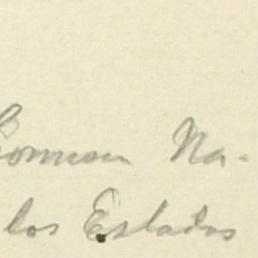 Common Na-
los Estados